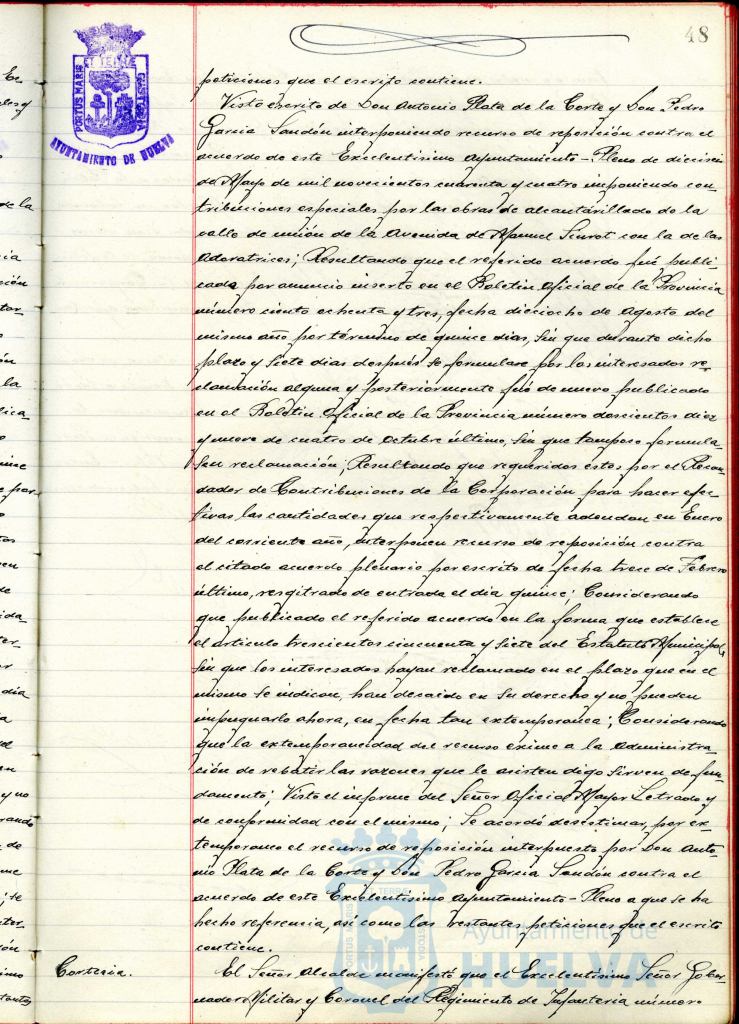 48
PORTUS MARIS ET TERRAE CUSTODIA
AYUNTAMIENTO DE HUELVA
peticiones que el escrito contiene.
Visto escrito de Don Antonio Plata de la Corte y Don Pedro
García Sandón interponiendo recurso de reposición contra el
acuerdo de este Excelentísimo Ayuntamiento-Pleno de dieciseis
de Mayo de mil novecientos cuarenta y cuatro imponiendo con-
tribuciones especiales por las obras de alcantarillado de la
calle de unión de la Avenida de Manuel Siurot con la de las
Adoratrices; Resultando que el referido acuerdo fué publi-
cado por anuncio inserto en el Boletín Oficial de la Provincia
número ciento ochenta y tres, fecha dieciocho de Agosto del
mismo año por término de quince días, sin que durante dicho
plazo y siete días después se formulase por los interesados re-
clamación alguna y posteriormente fué de nuevo publicado
en el Boletín Oficial de la Provincia número doscientos diez
y nueve de cuatro de Octubre último, sin que tampoco formula-
sen reclamación; Resultando que requeridos estos por el Recau-
dador de Contribuciones de la Corporación para hacer efec-
tivas las cantidades que respectivamente adeudan en Enero
del corriente año, interponen recurso de reposición contra
el citado acuerdo plenario por escrito de fecha trece de Febrero
último, resgitrado de entrada el día quince; Considerando
que publicado el referido acuerdo en la forma que establece
el artículo trescientos cincuenta y siete del Estatuto Municipal,
sin que los interesados hayan reclamado en el plazo que en el
mismo se indican, han decaido en su derecho y no pueden
impugnarlo ahora, en fecha tan extemporanea; Considerando
que la extemporaneidad del recurso exime a la Administra-
ción de rebatir las razones que le asisten digo sirven de fun-
damento; Visto el informe del Señor Oficial Mayor Letrado y
de conformidad con el mismo; Se acordó desestimar, por ex-
temporaneo el recurso de reposición interpuesto por Don Anto-
nio Plata de la Corte y Don Pedro García Sandón contra el
acuerdo de este Excelentísimo Ayuntamiento-Pleno a que se ha
hecho referencia, así como las restantes peticiones que el escrito
contiene.
Cortesia. El Señor Alcalde manifestó que el Excelentísimo Señor Gober-
nador Militar y Coronel del Regimiento de Infantería número
Ayuntamiento de
HUELVA